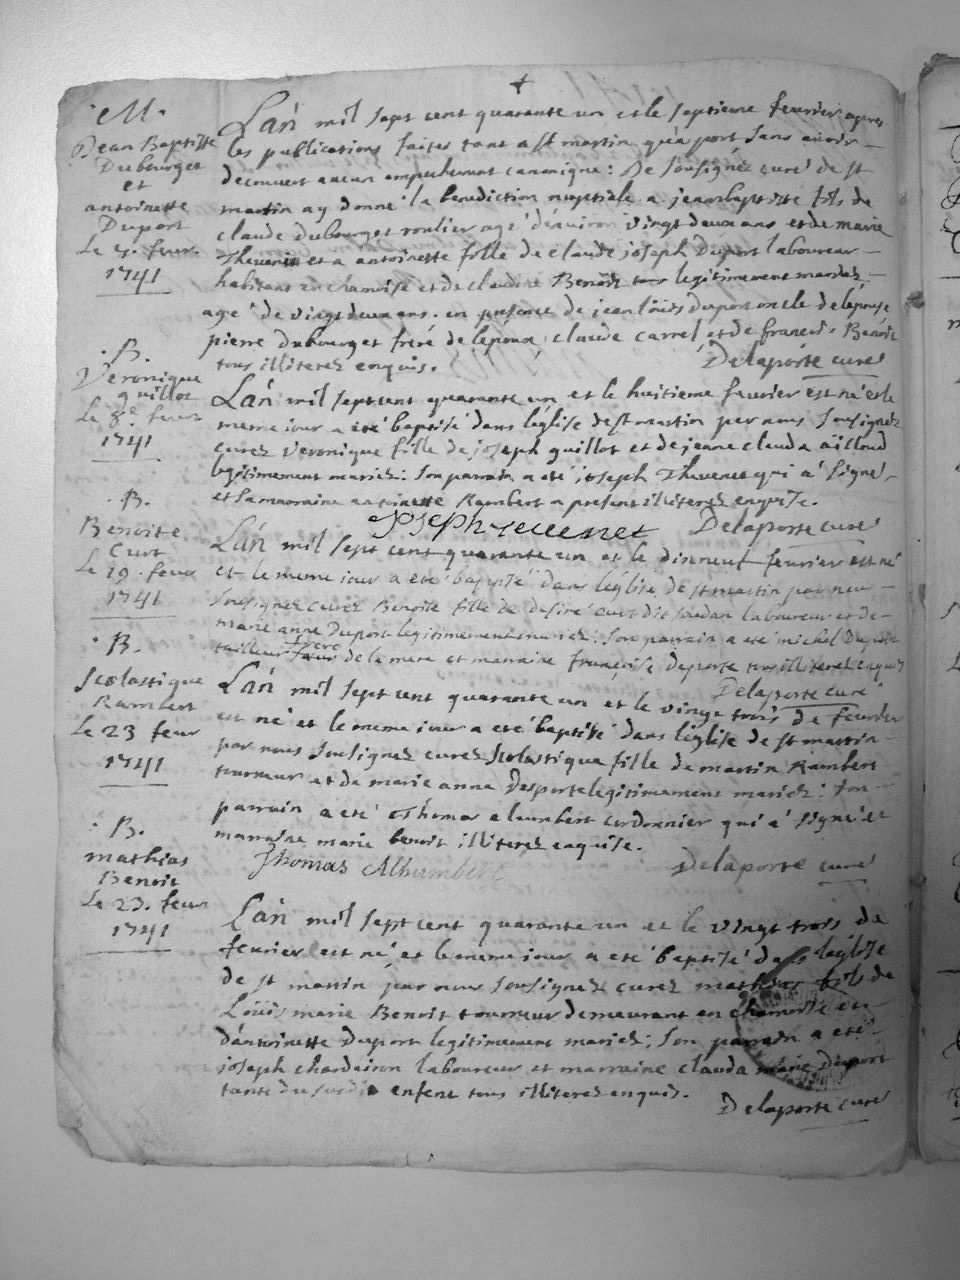 M.
Jean Baptiste
Dubourget
et
antoinette
Duport
Le 7. feur.
1741
Lan mil sept cent quarante un et le septieme feurier apres
les publications faites tant a st martin qu'a port sans auoir
decouuert aucun empechement canonique: Je sousignez curé de st
martin ay donné la benediction nuptiale a jean baptiste fils de
claude dubourget roulier agé d'enuiron vingt deux ans et de marie
Theuenin et a antoinette fille de claude joseph Duport laboureur
habitant en chamoise et de claudine Benoit legitimement mariez
agé de vingt deux ans. en presence de jean loüis duport oncle de lepouse
pierre dubourget freré de lepoux, claude carrel et de francois Benoit
tous illiterez enquis. Delaporte curé
B.
Veronique
guillot
Le 8e. feur
1741
Lan mil sept cent quarante un et le huitieme feurier est né et le
meme iour a eté baptisé dans leglise de st martin par nous sousignez
curez Veronique fille de joseph guillot et de jeanne clauda ailloud
legitimement mariez: son parrain a eté joseph Theuenet qui a signé
et sa marraine antoinette Rambert a presens illiterez enquise.
Joseph teuenet Delaporte curé
B.
Benoite
Curt
Le 19. feur
1741
Lan mil sept cent quarante un et le disneuf feurier est né
et le meme iour a eté baptisé dans leglise de st martin par nous
sousignez curez Benoite fille de desiré curt dit joudan laboureur et de
marie anne Duport legitimement mariez: son parrain a eté michel Duporte
tailleur frere de la mere et marraine françoise deporte tous illiterez enquis
Delaporte curé
B.
Scolastique
Rambert
Le 23 feur
1741
Lan mil sept cent quarante un et le vingt trois de feurier
est né et le meme iour a eté baptisé dans leglise de st martin
par nous sousignez curez Scolastique fille de martin Rambert
tourneur et de marie anne Desporte legitimement mariez: son
parrain a eté Thomas alumbert cordonnier qui a signé et
marraine marie benoit illiterez enquise.
Thomas Alhumbert Delaporte curé
B.
mathias
Benoit
Le 23. feur
1741
Lan mil sept cent quarante un et le vingt trois de
feurier est né, et le meme iour a eté baptisé dans leglise
de st martin par nous sousignez curez mathias fils de
Loüis marie Benoit tourneur demeurant en chamoise et
d'antoinette Duport legitimement mariez; son parrain a eté
joseph chardeiron laboureur et marraine clauda marie Duport
tante du susdit enfent tous illiterez enquis.
Delaporte curé